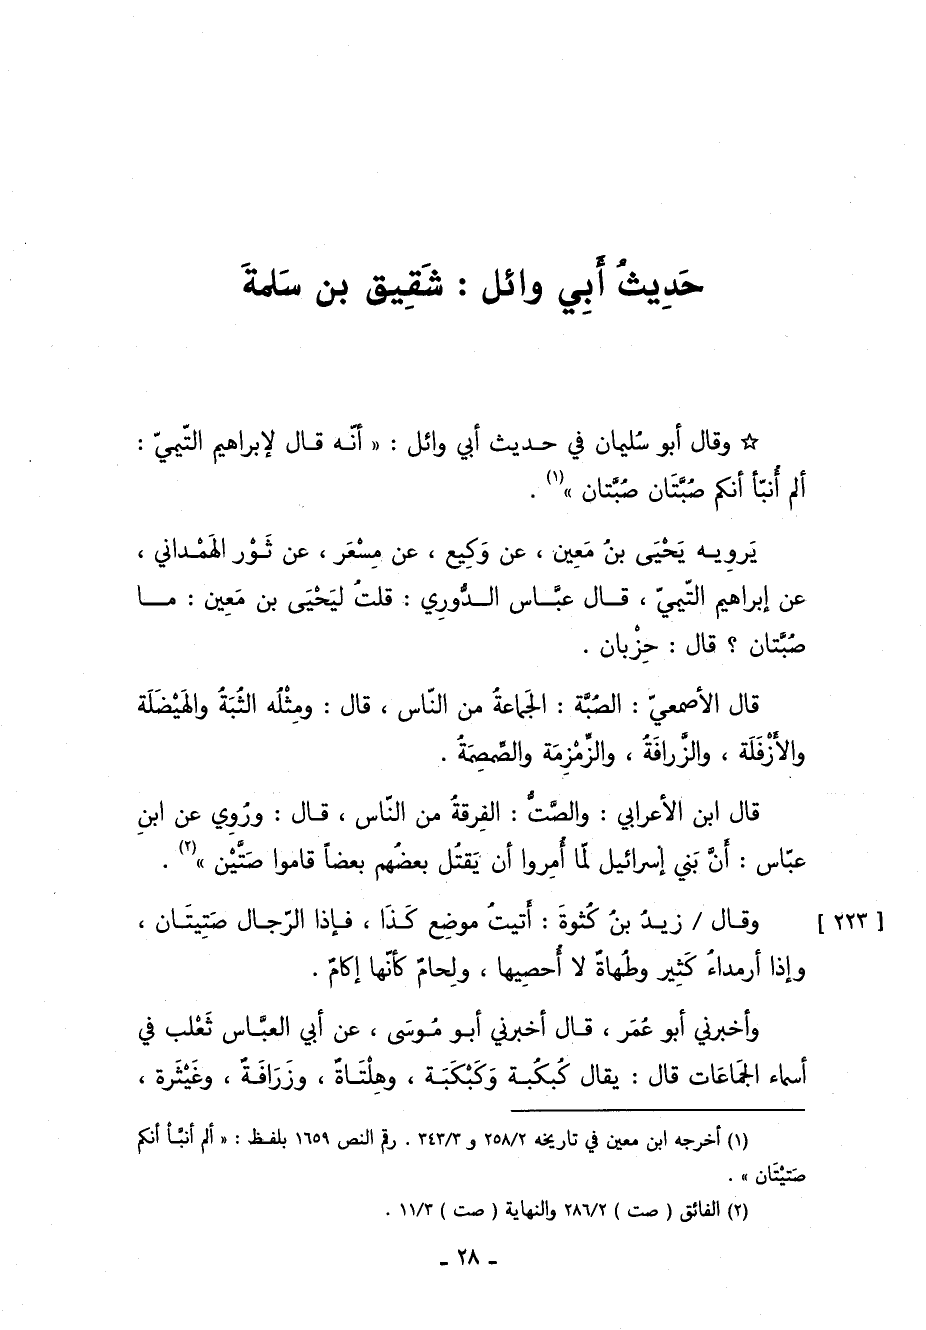 حَدِيثُ أَبِي وائل : شَقِيق بن سَلمةَ
☆ وقال أبو سُليمان في حـديث أبي وائل : « أنّـه قـال لإبراهيم التّيميّ :
ألم أُنبّأ أنكم صُبَّتَان صُبَّتان »(١) .
يَرويـه يَحْيَى بنُ مَعِين ، عن وَكِيع ، عن مِسْعَر ، عن ثَـوْر الهَمْـداني ،
عن إبراهيم التّيميّ ، قـال عبَّـاس الـدُّورِي : قلتُ ليَحْيَى بن مَعِين : مـا
صُبَّتان ؟ قال : حِزْبان .
قال الأصمعيّ : الصُبَّة : الجَماعةُ من النّاس ، قال : ومِثْلُه الثُبَةُ والهَيْضَلَة
والأَزْفَلَة ، والزَّرافَةُ ، والزِّمْزِمَة والصِّمصِمَةُ .
قال ابن الأعرابي : والصَّتُّ : الفِرقةُ من النّاس ، قـال : ورُوي عن ابنِ
عبّاس : أنَّ بَني إسرائيل لمّا أُمِروا أن يَقتُل بعضُهم بعضاً قاموا صَتَّيْن »(٢) .
[ ٢٢٣ ] وقـال / زيـدُ بنُ كُثوةَ : أَتيتُ موضِع كَـذَا ، فـإذا الرّجال صَتِيتَـان ،
وإذا أرمداءُ كَثِير وطُهاةٌ لا أُحصِيها ، ولِحامٌ كأنّها إكامٌ .
وأخبرني أبو عُمَر ، قـال أخبرني أبـو مُـوسَى ، عن أبي العبَّـاس ثَعْلب في
أسماء الجَمَاعَات قال : يقال كُبكُبـة وَكَبْكَبَـة ، وهِلْتَـاةٌ ، وزَرَافَـةٌ ، وغَيْثَرة ،
(١) أخرجه ابن معين في تاريخه ٢٥٨/٢ و ٣٤٣/٣ . رقم النص ١٦٥٩ بلفـظ : « ألم أنبَّـأ أنكم
صَتيْتَان » .
(٢) الفائق ( صت ) ٢٨٦/٢ والنهاية ( صت ) ١١/٣ .
- ٢٨ -